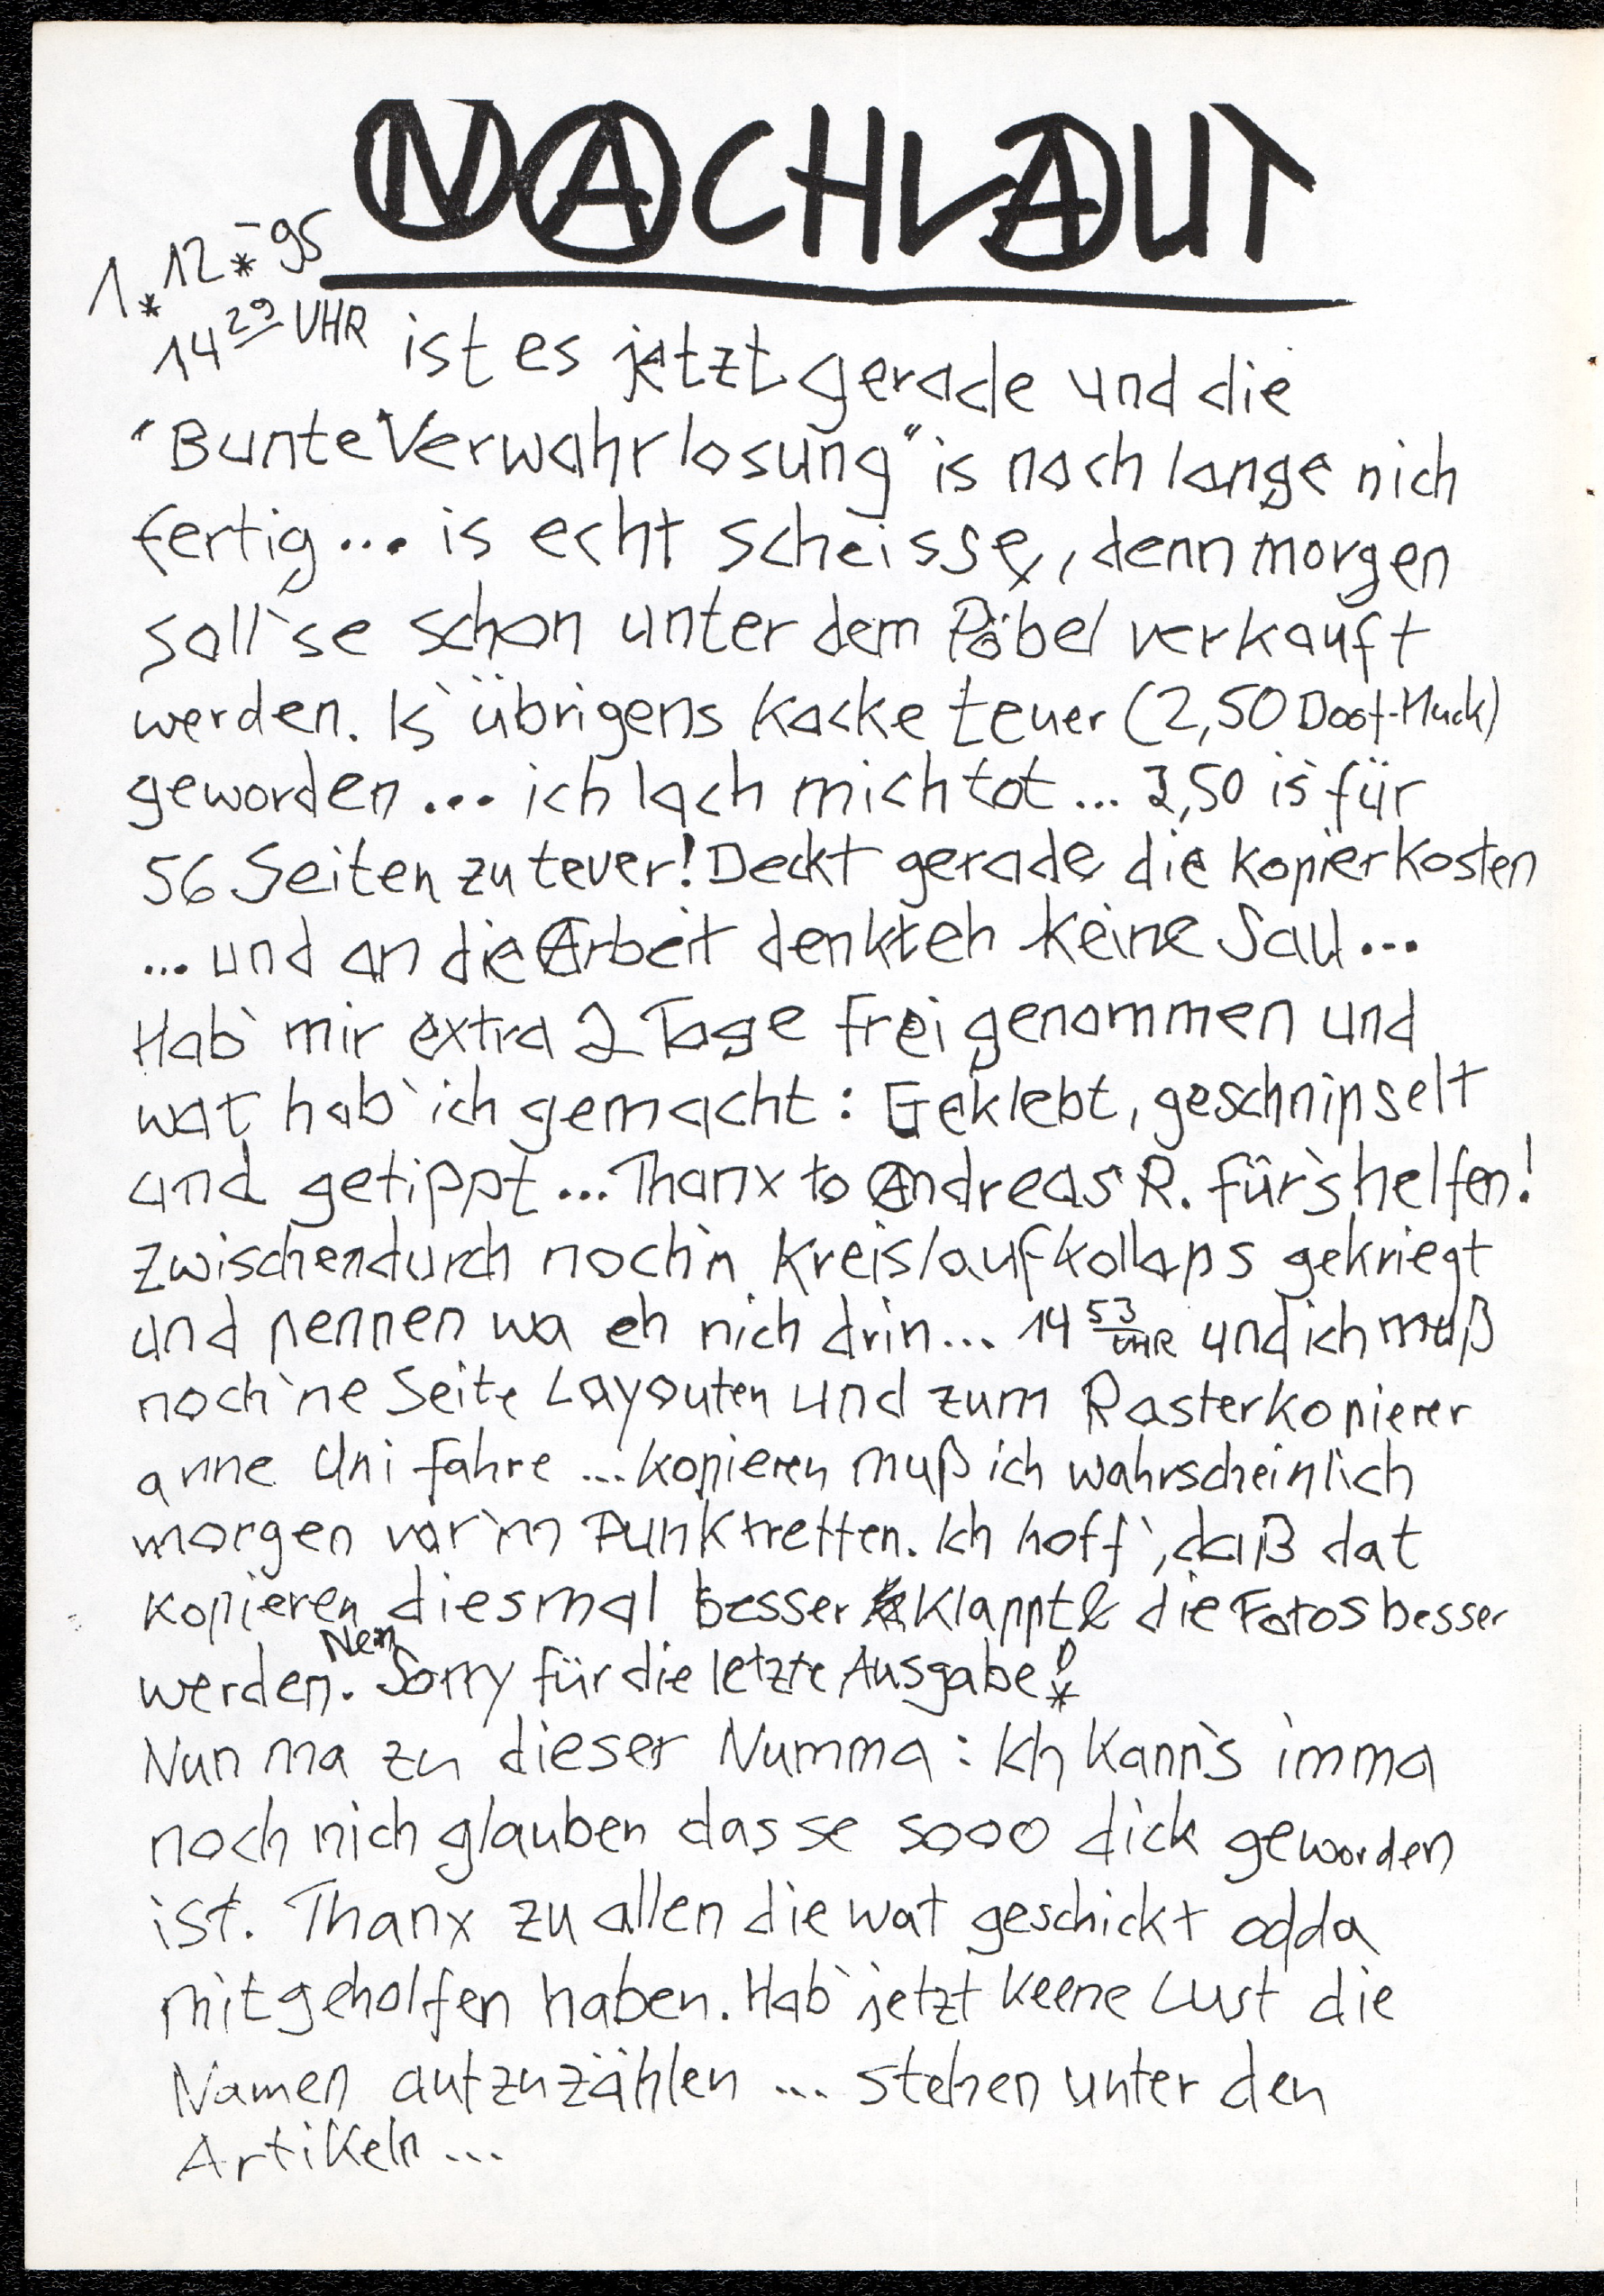 NACHLAUT
1.12.-95
14 29 UHR ist es jetzt gerade und die
"Bunte Verwahrlosung" is noch lange nich
fertig... is echt scheisse, denn morgen
soll`se schon unter dem Pöbel verkauft
werden. Is` übrigens Kacke teuer (2,50 Doof-Muck)
geworden... ich lach mich tot... 2,50 is für
56 Seiten zu teuer! Deckt gerade die Kopierkosten
... und an die Arbeit denkt eh keine Sau...
Hab` mir extra 2 Tage frei genommen und
wat hab` ich gemacht: Geklebt, geschnipselt
und getippt... Thanx to Andreas R. für`s helfen!
Zwischendurch noch`n Kreislaufkollaps gekriegt
und pennen wa eh nich drin... 14 53 UHR und ich muß
noch `ne Seite Layouten und zum Rasterkopierer
anne Uni fahre ... kopieren muß ich wahrscheinlich
morgen vor`m Punktretten. Ich hoff`, daß dat
kopieren diesmal besser klappt & die Fotos besser
werden. Nen Sorry für die letzte Ausgabe!
Nun ma zu dieser Numma: Ich kann`s imma
noch nich glauben das se sooo dick geworden
ist. Thanx zu allen die wat geschickt odda
mitgeholfen haben. Hab` jetzt keene Lust die
Namen aufzuzählen ... stehen unter den
Artikeln ...